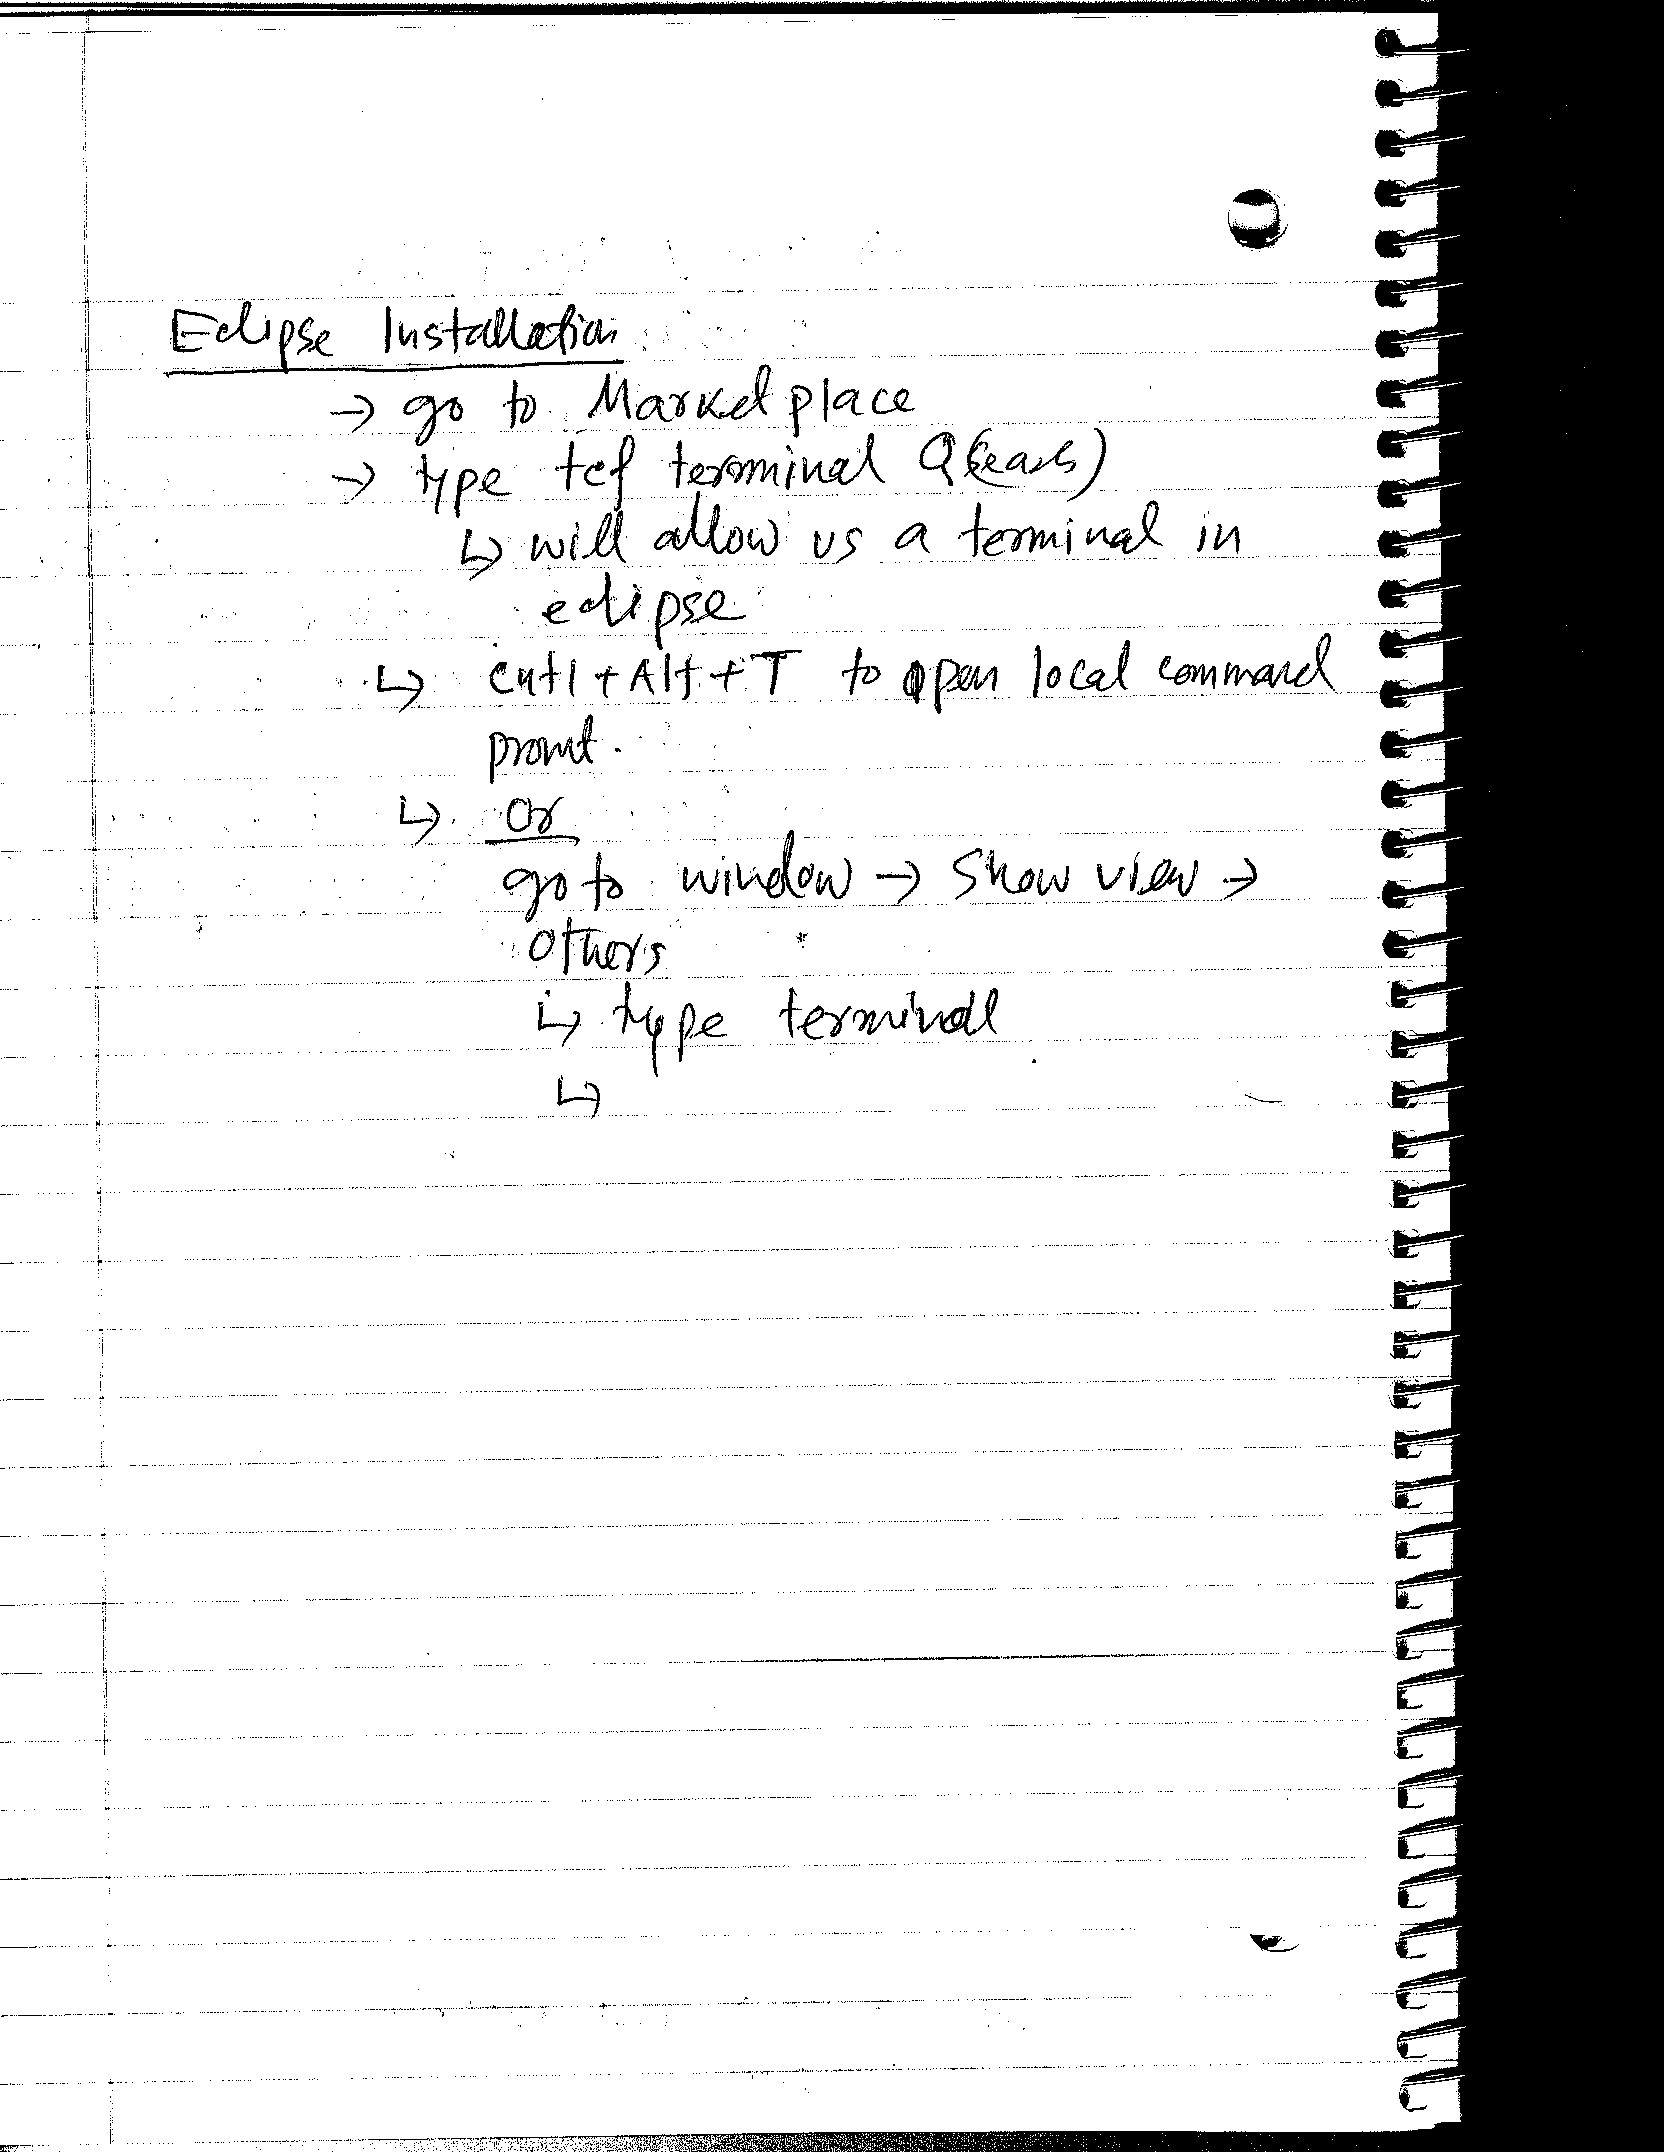 Eclipse Installation
→ go to Marketplace
→ type tcf terminal Q(Search)
↳ will allow us a terminal in
eclipse
↳ cntl + Alt + T to open local command
promt.
↳ or
go to window → Show view →
others
↳ type terminal
↳